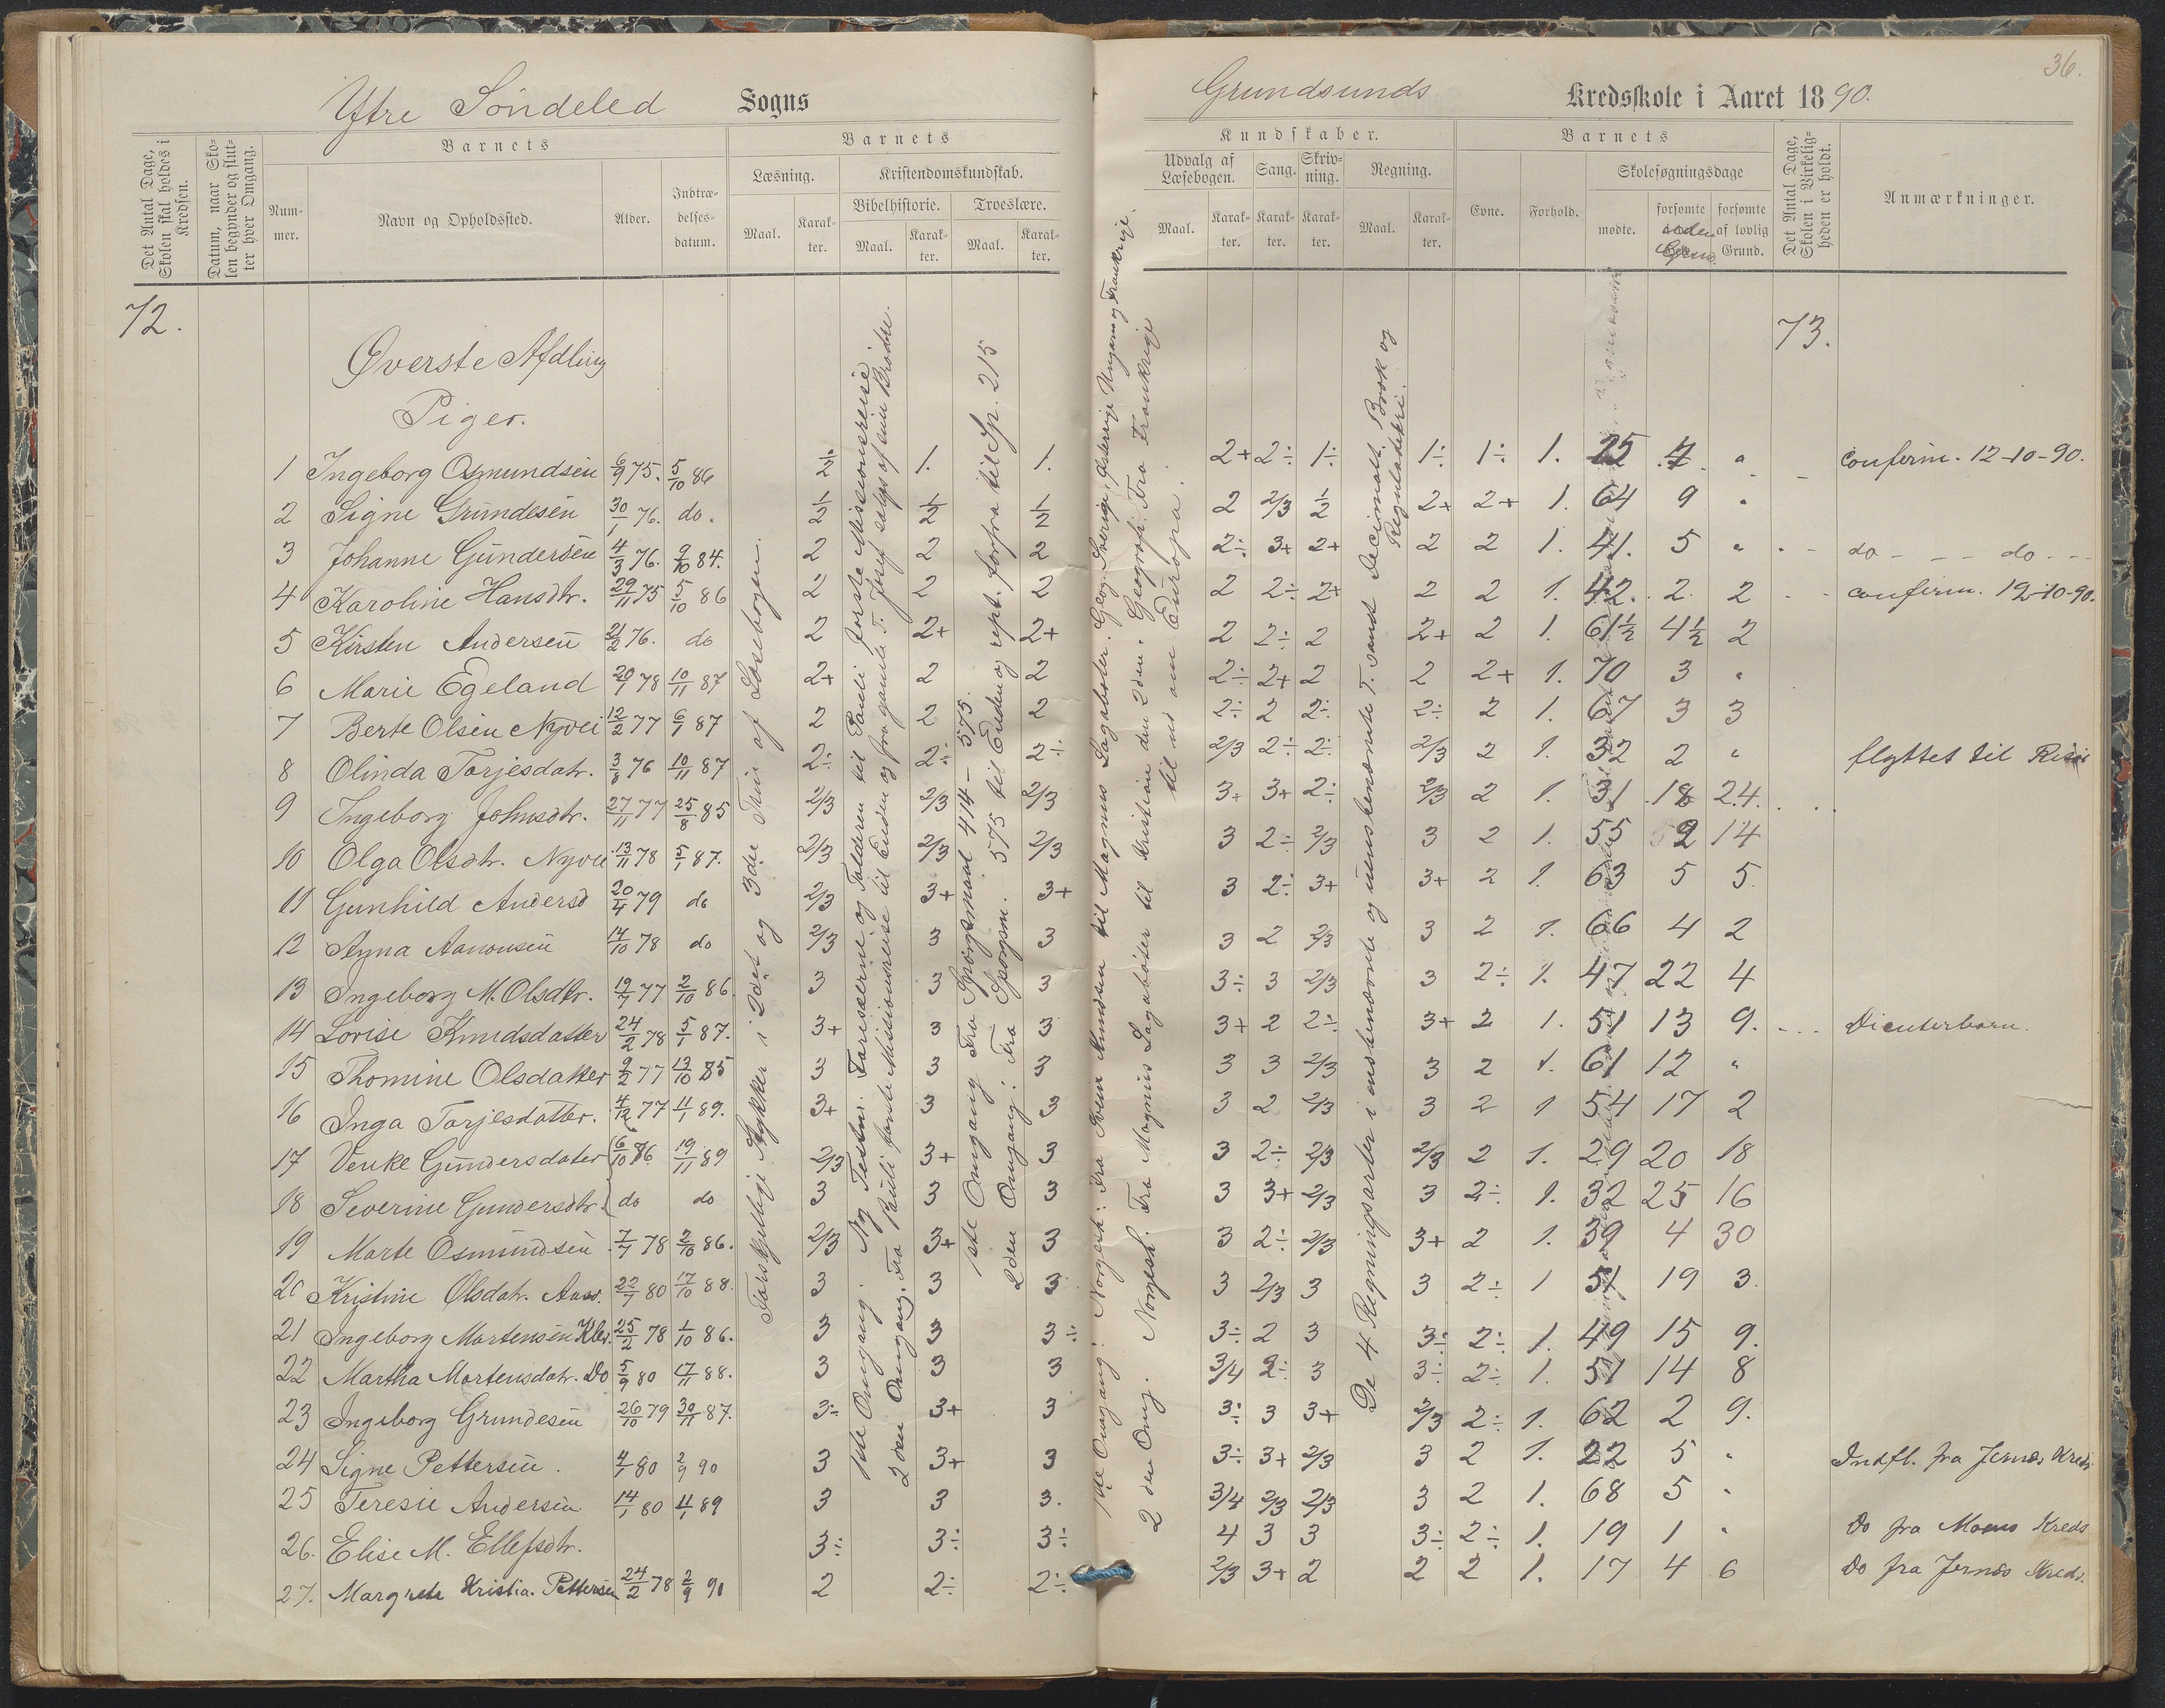 36.
Ytre Söndeled Sogns
Grundsunds Kredsskole i Aaret 1890.
Det Antal Dage, Skolen skal holdes i Kredsen.
Datum, naar Skolen begynder og slutter hver Omgang.
Barnets
Nummer.
Navn og Opholdssted.
Alder.
Indtrædelsesdatum.
Barnets
Læsning.
Maal.
Karakter.
Kristendomskundskab.
Bibelhistorie.
Maal.
Karakter.
Troeslære.
Maal.
Karakter.
Kundskaber.
Udvalg af Læsebogen.
Maal.
Karakter.
Sang.
Karakter.
Skrivning.
Karakter.
Regning.
Maal.
Karakter.
Barnets
Evne.
Forhold.
Skolesøgningsdage
mødte.
forsømte uden Grund.
forsømte af lovlig Grund.
Det Antal Dage, Skolen i Virkeligheden er holdt.
Anmærkninger.
72.
73.
Øverste Afdling
Piger.
1 Ingeborg Osmundsen 6/9 75. 5/10 86 1/2 1. 1. 2+ 2÷ 1÷ 1÷ 1÷ 1. 25 7 " confirm. 12-10-90.
2 Signe Grundesen 30/1 76. do. 1/2 1/2 1/2 2 2/3 1/2 2+ 2+ 1. 64 9 "
3 Johanne Gundersen 4/3 76. 9/10 84. 2 2 2 2÷ 3+ 2+ 2 2 1. 41. 5 " do - - - do - - -
4 Karoline Hansdtr. 29/11 75 5/10 86 2 2 2 2 2÷ 2+ 2 2 1. 42. 2. 2 confirm. 12-10-90.
5 Kirsten Andersen 21/2 76. do 2 2+ 2+ 2 2÷ 2 2+ 2 1. 61½ 4½ 2
6 Marie Egeland 20/1 78 10/11 87 2+ 2 2 2÷ 2+ 2 2 2+ 1. 70 3 "
7 Berte Olsen Nyvei 12/2 77 6/1 87 2 2 2 2÷ 2 2÷ 2÷ 2 1. 67 3 3
8 Olinda Torjesdatr. 3/8 76 10/11 87 2÷ 2÷ 2÷ 2/3 2÷ 2÷ 2/3 2 1. 32 2 " flyttet til Risør
9 Ingeborg Johnsdtr. 27/11 77 25/8 85 2/3 2/3 2/3 3+ 3+ 2÷ 2/3 2 1. 31 18 24.
10 Olga Olsdtr. Nyvei 13/11 78 5/1 87. 2/3 2/3 2/3 3 2÷ 2/3 3 2 1. 55 2 14
11 Gunhild Andersd 20/4 79 do 2/3 3+ 3+ 3 2÷ 3+ 3+ 2 1. 63 5 5.
12 Anna Aanonsen 14/10 78 do 2/3 3 3 3 2 2/3 3 2 1. 66 4 2
13 Ingeborg M. Olsdtr. 19/7 77 2/10 86. 3 3 3 3÷ 3 2/3 3 2÷ 1. 47 22 4
14 Lovise Knudsdatter 24/2 78 5/1 87. 3+ 3 3 3+ 2 2÷ 3+ 2 1. 51 13 9. Dienterbarn.
15 Thomine Olsdatter 9/2 77 13/10 85 3 3 3 3 3 2/3 3 2 1. 61 12 "
16 Inga Torjesdatter. 4/12 77 11/1 89. 3+ 3 3 3 2 2/3 3 2 1 54 17 2
17 Venke Gundersdater 6/10 76 19/11 89 2/3 3+ 3 3 2÷ 2/3 2/3 2 1. 29 20 18
18 Severine Gundersdtr. do do 3 3 3 3 3+ 2/3 3 2÷ 1. 32 25 16
19 Marte Osmundsen 7/7 78 2/10 86. 2/3 3+ 3 3 2÷ 2/3 3+ 2 1. 39 4 30
20 Kristine Olsdatr. 22/7 80 17/10 88. 3 3 3 3 2/3 3 3 2÷ 1 51 19 3.
21 Ingeborg Mortensen 25/2 78 1/10 86. 3 3 3÷ 3÷ 2 3 3÷ 2÷ 1. 49 15 9.
22 Martha Mortensdatr. Do 5/9 80 17/11 88. 3 3 3 3/4 2÷ 3 3÷ 2÷ 1. 51 14 8
23 Ingeborg Grundesen 26/10 79 30/11 87. 3÷ 3+ 3 3÷ 3 3+ 2/3 2÷ 1. 62 2 9.
24 Signe Pettersen. 4/1 80 2/9 90 3 3+ 3 3÷ 3+ 2/3 3 2 1. 22 5 " Indfl. fra Jernæs Kreds
25 Teresie Andersen 14/1 80 11/1 89 3 3 3. 3/4 2/3 2/3 3 2 1. 68 5 "
26. Elise M. Ellefsdtr. 3÷ 3÷ 3÷ 4 3 3 3÷ 2÷ 1. 19 1 " Do fra Moens Kreds
27. Margrete Kristia. Pettersen 24/2 78 2/9 90 2 2÷ 2÷ 2/3 3+ 2 2 2 1. 17 4 6 Do fra Jernæs Kreds.
Forskjellige Stykker i 2det og 3die Trin af Læsebogen.
1ste Omgang. Ny Testm. Farisæerne og Tolderen til Pauli første Missionsreise.
2den Omgang. Fra Pauli første Missionsreise til Enden og fra gamle T. Josef sælges af sine Brødre.
1ste Omgang Fra Spørgsmaal 414 - 575.
2den Omgang: Fra Spørgsm. 575 til Enden og rept. forfra til Sp. 215
1ste Omgang: Norgesh: Fra Svein Knudsen til Magnus Lagabøter. Geog. Sverige, Østerrige Ungarn og Frankerige.
2den Omg. Norgesh. Fra Magnus Lagabøter til Kristian den 2den. Geografi: Fra Frankrige
til ud om Europa.
De 4 Regningsarter i ensbenævnte og uensbenævnte T. samt Decimalt. Brøk og
Reguladetri.